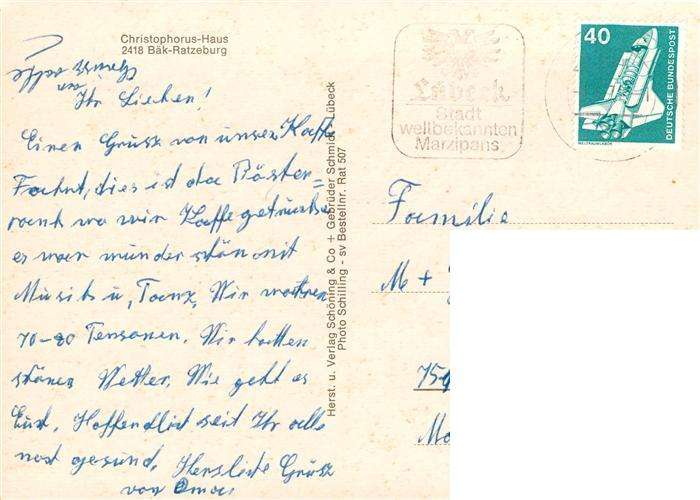 Christophorus-Haus
2418 Bäk-Ratzeburg
Ihr Lieben!
Einen Gruss von unser Kaffe
Fahrt, dies ist das Rester=
rant wo wir Kaffe getrunken
es war wunder schön mit
Musik u, Tanz, Wir waren
70-80 Personen. Wir hatten
schönes Wetter, Wie geht es
Euch, Hoffendlich seit Ihr alle
noch gesund, Herzliche Grüsse
von Omas
Herst. u. Verlag Schöning & Co + Gebrüder Schmidt - Lübeck
Photo Schilling - sv Bestellnr. Rat 507
Lübeck
Stadt
weltbekannten
Marzipans
40
DEUTSCHE BUNDESPOST
WELTRAUMLABOR
Familie
M +